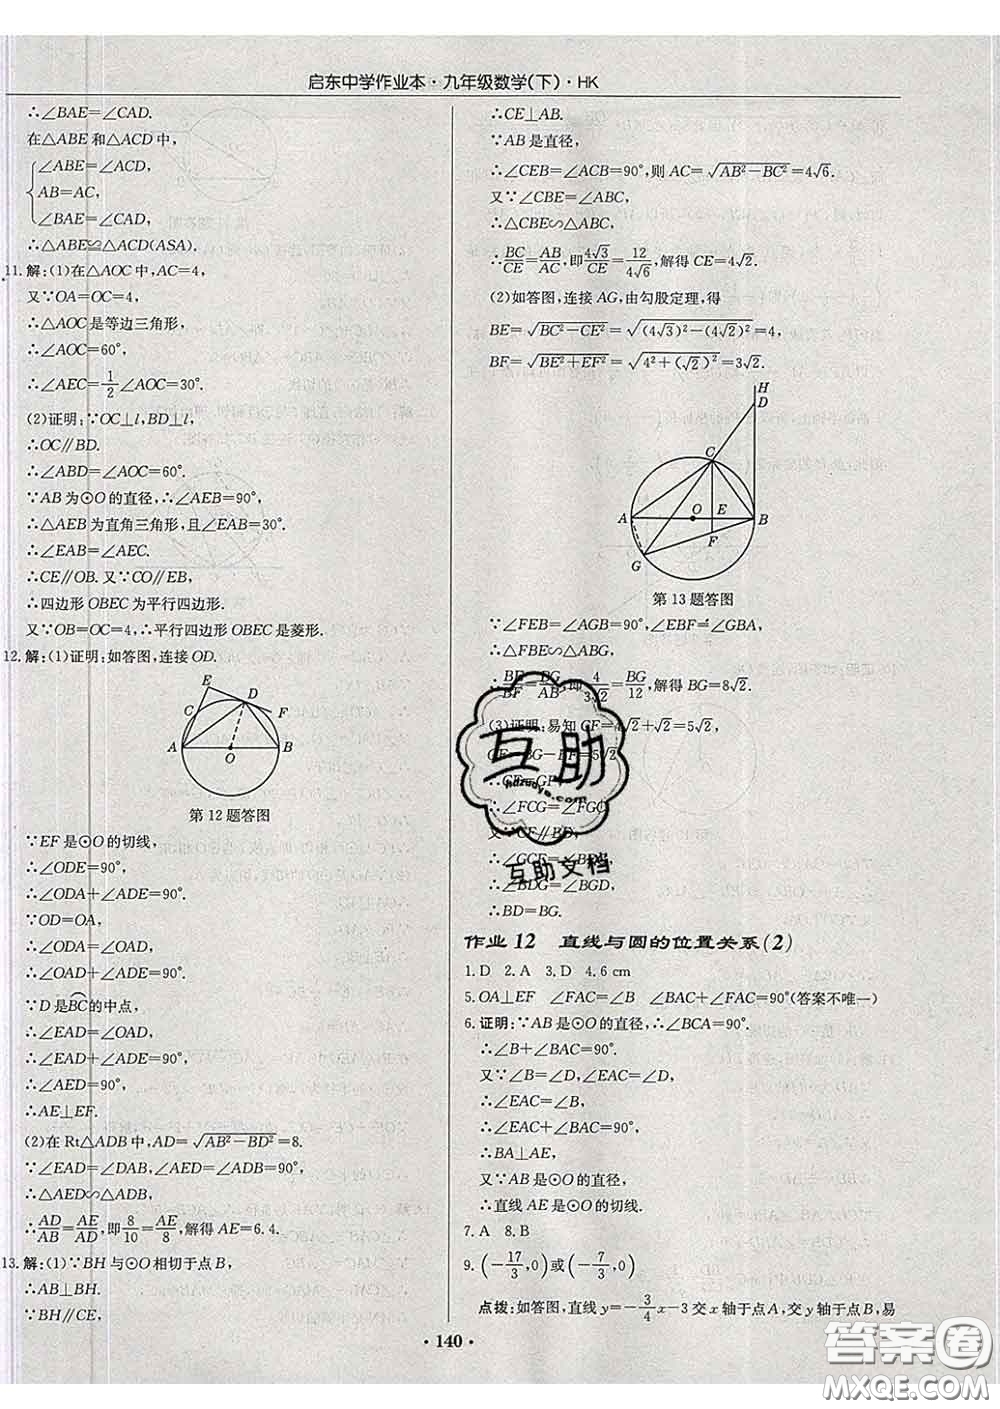 启东中学作业本·九年级数学(下)·HK
∴∠BAE=∠CAD.
在△ABE和△ACD中,
∠ABE=∠ACD,
AB=AC,
∠BAE=∠CAD,
∴△ABE≌△ACD(ASA).
11.解:(1)在△AOC中,AC=4,
又∵OA=OC=4,
∴△AOC是等边三角形,
∴∠AOC=60°,
∴∠AEC=1/2∠AOC=30°.
(2)证明:∵OC⊥l,BD⊥l,
∴OC∥BD.
∴∠ABD=∠AOC=60°.
∵AB为⊙O的直径,∴∠AEB=90°.
∴△AEB为直角三角形,且∠EAB=30°.
∴∠EAB=∠AEC.
∴CE∥OB.又∵CO∥EB,
∴四边形OBEC为平行四边形.
又∵OB=OC=4,∴平行四边形OBEC是菱形.
12.解:(1)证明:如答图,连接OD.
E
D
C
F
A
O
B
第12题答图
∵EF是⊙O的切线,
∴∠ODE=90°.
∴∠ODA+∠ADE=90°.
∵OD=OA,
∴∠OAD=∠ODA,
∴∠OAD+∠ADE=90°.
∵D是BC⌒的中点,
∴∠EAD=∠OAD,
∴∠EAD+∠ADE=90°,
∴∠AED=90°,
∴AE⊥EF.
(2)在Rt△ADB中,AD=√(AB²-BD²)=8.
∵∠EAD=∠DAB,∠AED=∠ADB=90°,
∴△AED∽△ADB,
∴AD/AB=AE/AD,即8/10=AE/8,解得AE=6.4.
13.解:(1)∵BH与⊙O相切于点B,
∴AB⊥BH.
∵BH∥CE,
∴CE⊥AB.
∵AB是直径,
∴∠CEB=∠ACB=90°,则AC=√(AB²-BC²)=4√6.
又∵∠CBE=∠ABC,
∴△CBE∽△ABC,
∴BC/CE=AB/AC,即4√3/CE=12/4√6,解得CE=4√2.
(2)如答图,连接AG,由勾股定理,得
BE=√(BC²-CE²)=√((4√3)²-(4√2)²)=4,
BF=√(BE²+EF²)=√(4²+(√2)²)=3√2.
H
D
C
A
O
E
B
F
G
第13题答图
∵∠FEB=∠AGB=90°,∠EBF=∠GBA,
∴△FBE∽△ABG,
∴BE/BF=BG/AB,即4/3√2=BG/12,解得BG=8√2.
(3)证明:易知CF=4√2+√2=5√2,
GF=BG-BF=5√2
∴CF=GF,
∴∠FCG=∠FGC,
又∵CF∥BD,
∴∠GCF=∠BDG,
∴∠BDG=∠BGD,
∴BD=BG.
互助
hdzuoye.com
互助文档
作业12 直线与圆的位置关系(2)
1.D 2.A 3.D 4.6 cm
5.OA⊥EF ∠FAC=∠B ∠BAC+∠FAC=90°(答案不唯一)
6.证明:∵AB是⊙O的直径,∴∠BCA=90°.
∴∠B+∠BAC=90°.
又∵∠B=∠D,∠EAC=∠D,
∴∠EAC=∠B,
∴∠EAC+∠BAC=90°,
∴BA⊥AE,
又∵AB是⊙O的直径,
∴直线AE是⊙O的切线.
7.A 8.B
9.(-17/3,0)或(-7/3,0)
点拨:如答图,直线y=-3/4x-3交x轴于点A,交y轴于点B,易
·140·
答案圈
MXQE.COM